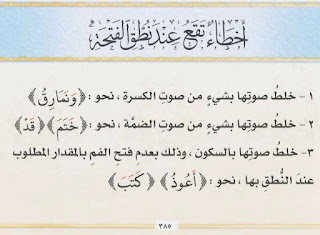 أَخْطَاءٌ تَقَعُ عِنْدَ نُطْقِ الفَتْحَةِ
١- خلطُ صوتِها بشيءٍ من صوتِ الكسرة، نحو: ﴿وَنَمَارِقُ﴾
٢- خلطُ صوتِها بشيءٍ من صوتِ الضمَّة، نحو: ﴿خَتَمَ﴾ ﴿قَدْ﴾
٣- خلطُ صوتِها بالسكون، وذلك بعدمِ فتحِ الفمِ بالمقدار المطلوب
عندَ النُّطقِ بها، نحو: ﴿أَعُوذُ﴾ ﴿كَتَبَ﴾
٣٨٥